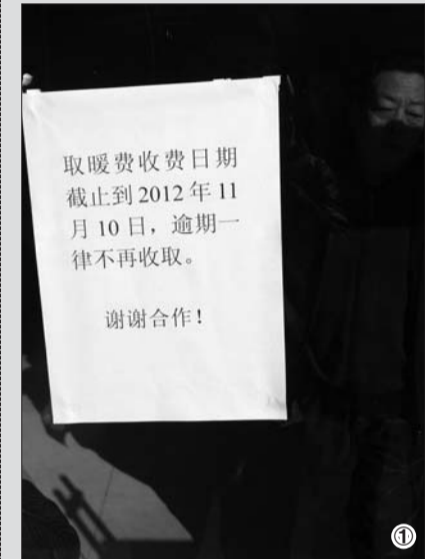 取暖费收费日期
截止到 2012 年 11
月 10 日，逾期一
律不再收取。
谢谢合作！
①